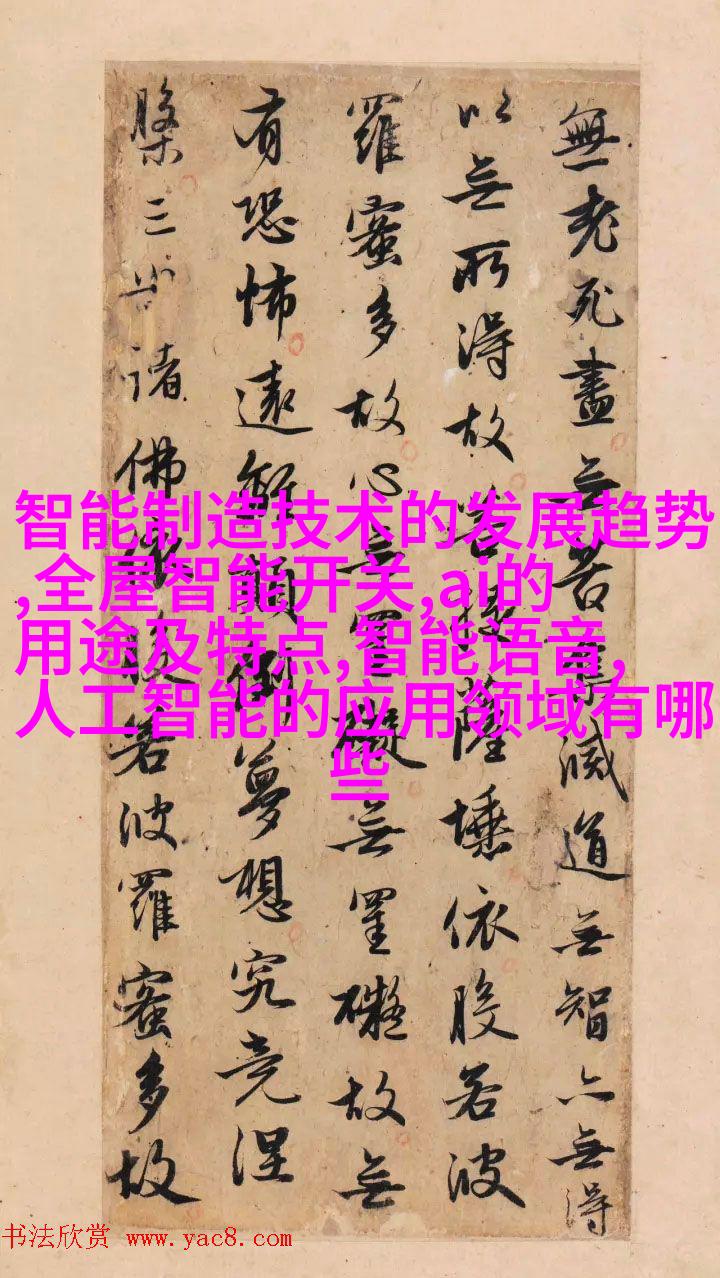 無老死盡无苦集滅道无智亦无得
以无所得故菩提薩埵依般若波
羅蜜多故心无罣礙无罣礙故无
有恐怖遠離顛倒夢想究竟涅
槃三世諸佛依般若波羅蜜多故
智能制造技术的发展趋势
,全屋智能开关,ai的
用途及特点,智能语音,
人工智能的应用领域有哪
些
书法欣赏 www.yac8.com